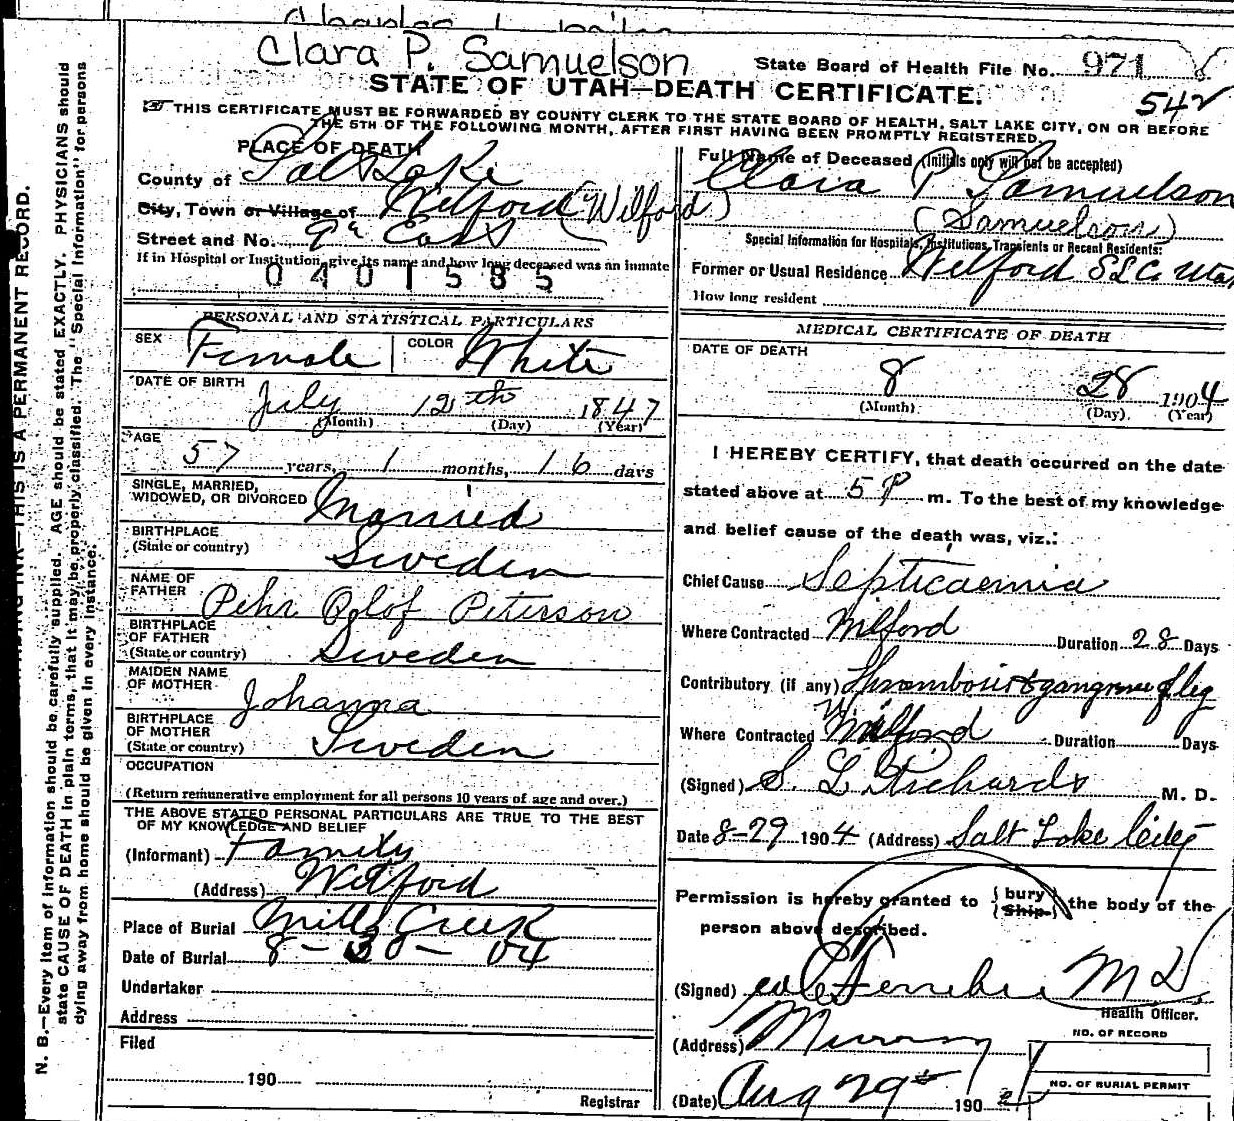 Clara P. Samuelson
State Board of Health File No. 971
STATE OF UTAH—DEATH CERTIFICATE.
542
THIS CERTIFICATE MUST BE FORWARDED BY COUNTY CLERK TO THE STATE BOARD OF HEALTH, SALT LAKE CITY, ON OR BEFORE
THE 5TH OF THE FOLLOWING MONTH, AFTER FIRST HAVING BEEN PROMPTLY REGISTERED.
PLACE OF DEATH
County of Salt Lake
City, Town or Village of Wilford (Wilford)
Street and No. 9th East
If in Hospital or Institution, give its name and how long deceased was an inmate
0401585
PERSONAL AND STATISTICAL PARTICULARS
SEX Female COLOR White
DATE OF BIRTH
July 12th 1847
(Month) (Day) (Year)
AGE
57 years, 1 months, 16 days
SINGLE, MARRIED,
WIDOWED, OR DIVORCED Married
BIRTHPLACE
(State or country) Sweden
NAME OF
FATHER Pehr Olof Peterson
BIRTHPLACE
OF FATHER
(State or country) Sweden
MAIDEN NAME
OF MOTHER Johanna
BIRTHPLACE
OF MOTHER
(State or country) Sweden
OCCUPATION
(Return remunerative employment for all persons 10 years of age and over.)
THE ABOVE STATED PERSONAL PARTICULARS ARE TRUE TO THE BEST
OF MY KNOWLEDGE AND BELIEF
(Informant) Family
(Address) Wilford
Place of Burial Mill Creek
Date of Burial 8-30-04
Undertaker
Address
Filed
190
Registrar
Full Name of Deceased (Initials only will not be accepted)
Clara P Samuelson
(Samuelson)
Special Information for Hospitals, Institutions, Transients or Recent Residents:
Former or Usual Residence Wilford S L Co. Utah
How long resident
MEDICAL CERTIFICATE OF DEATH
DATE OF DEATH
8 28 1904
(Month) (Day) (Year)
I HEREBY CERTIFY, that death occurred on the date
stated above at 5 P m. To the best of my knowledge
and belief cause of the death was, viz.:
Chief Cause Septicaemia
Where Contracted Milford Duration 28 Days
Contributory (if any) Thrombosis & gangrene of leg
Where Contracted Wilford Duration Days
(Signed) S. L Richards M. D.
Date 8-29 1904 (Address) Salt Lake City
Permission is hereby granted to { bury / Ship } the body of the
person above described.
(Signed) M D
Health Officer.
(Address) Murray
(Date) Aug 29th 190
NO. OF RECORD
NO. OF BURIAL PERMIT
N. B.—Every item of information should be carefully supplied. AGE should be stated EXACTLY. PHYSICIANS should
state CAUSE OF DEATH in plain terms, that it may be properly classified. The "Special Information" for persons
dying away from home should be given in every instance.
INK—THIS IS A PERMANENT RECORD.